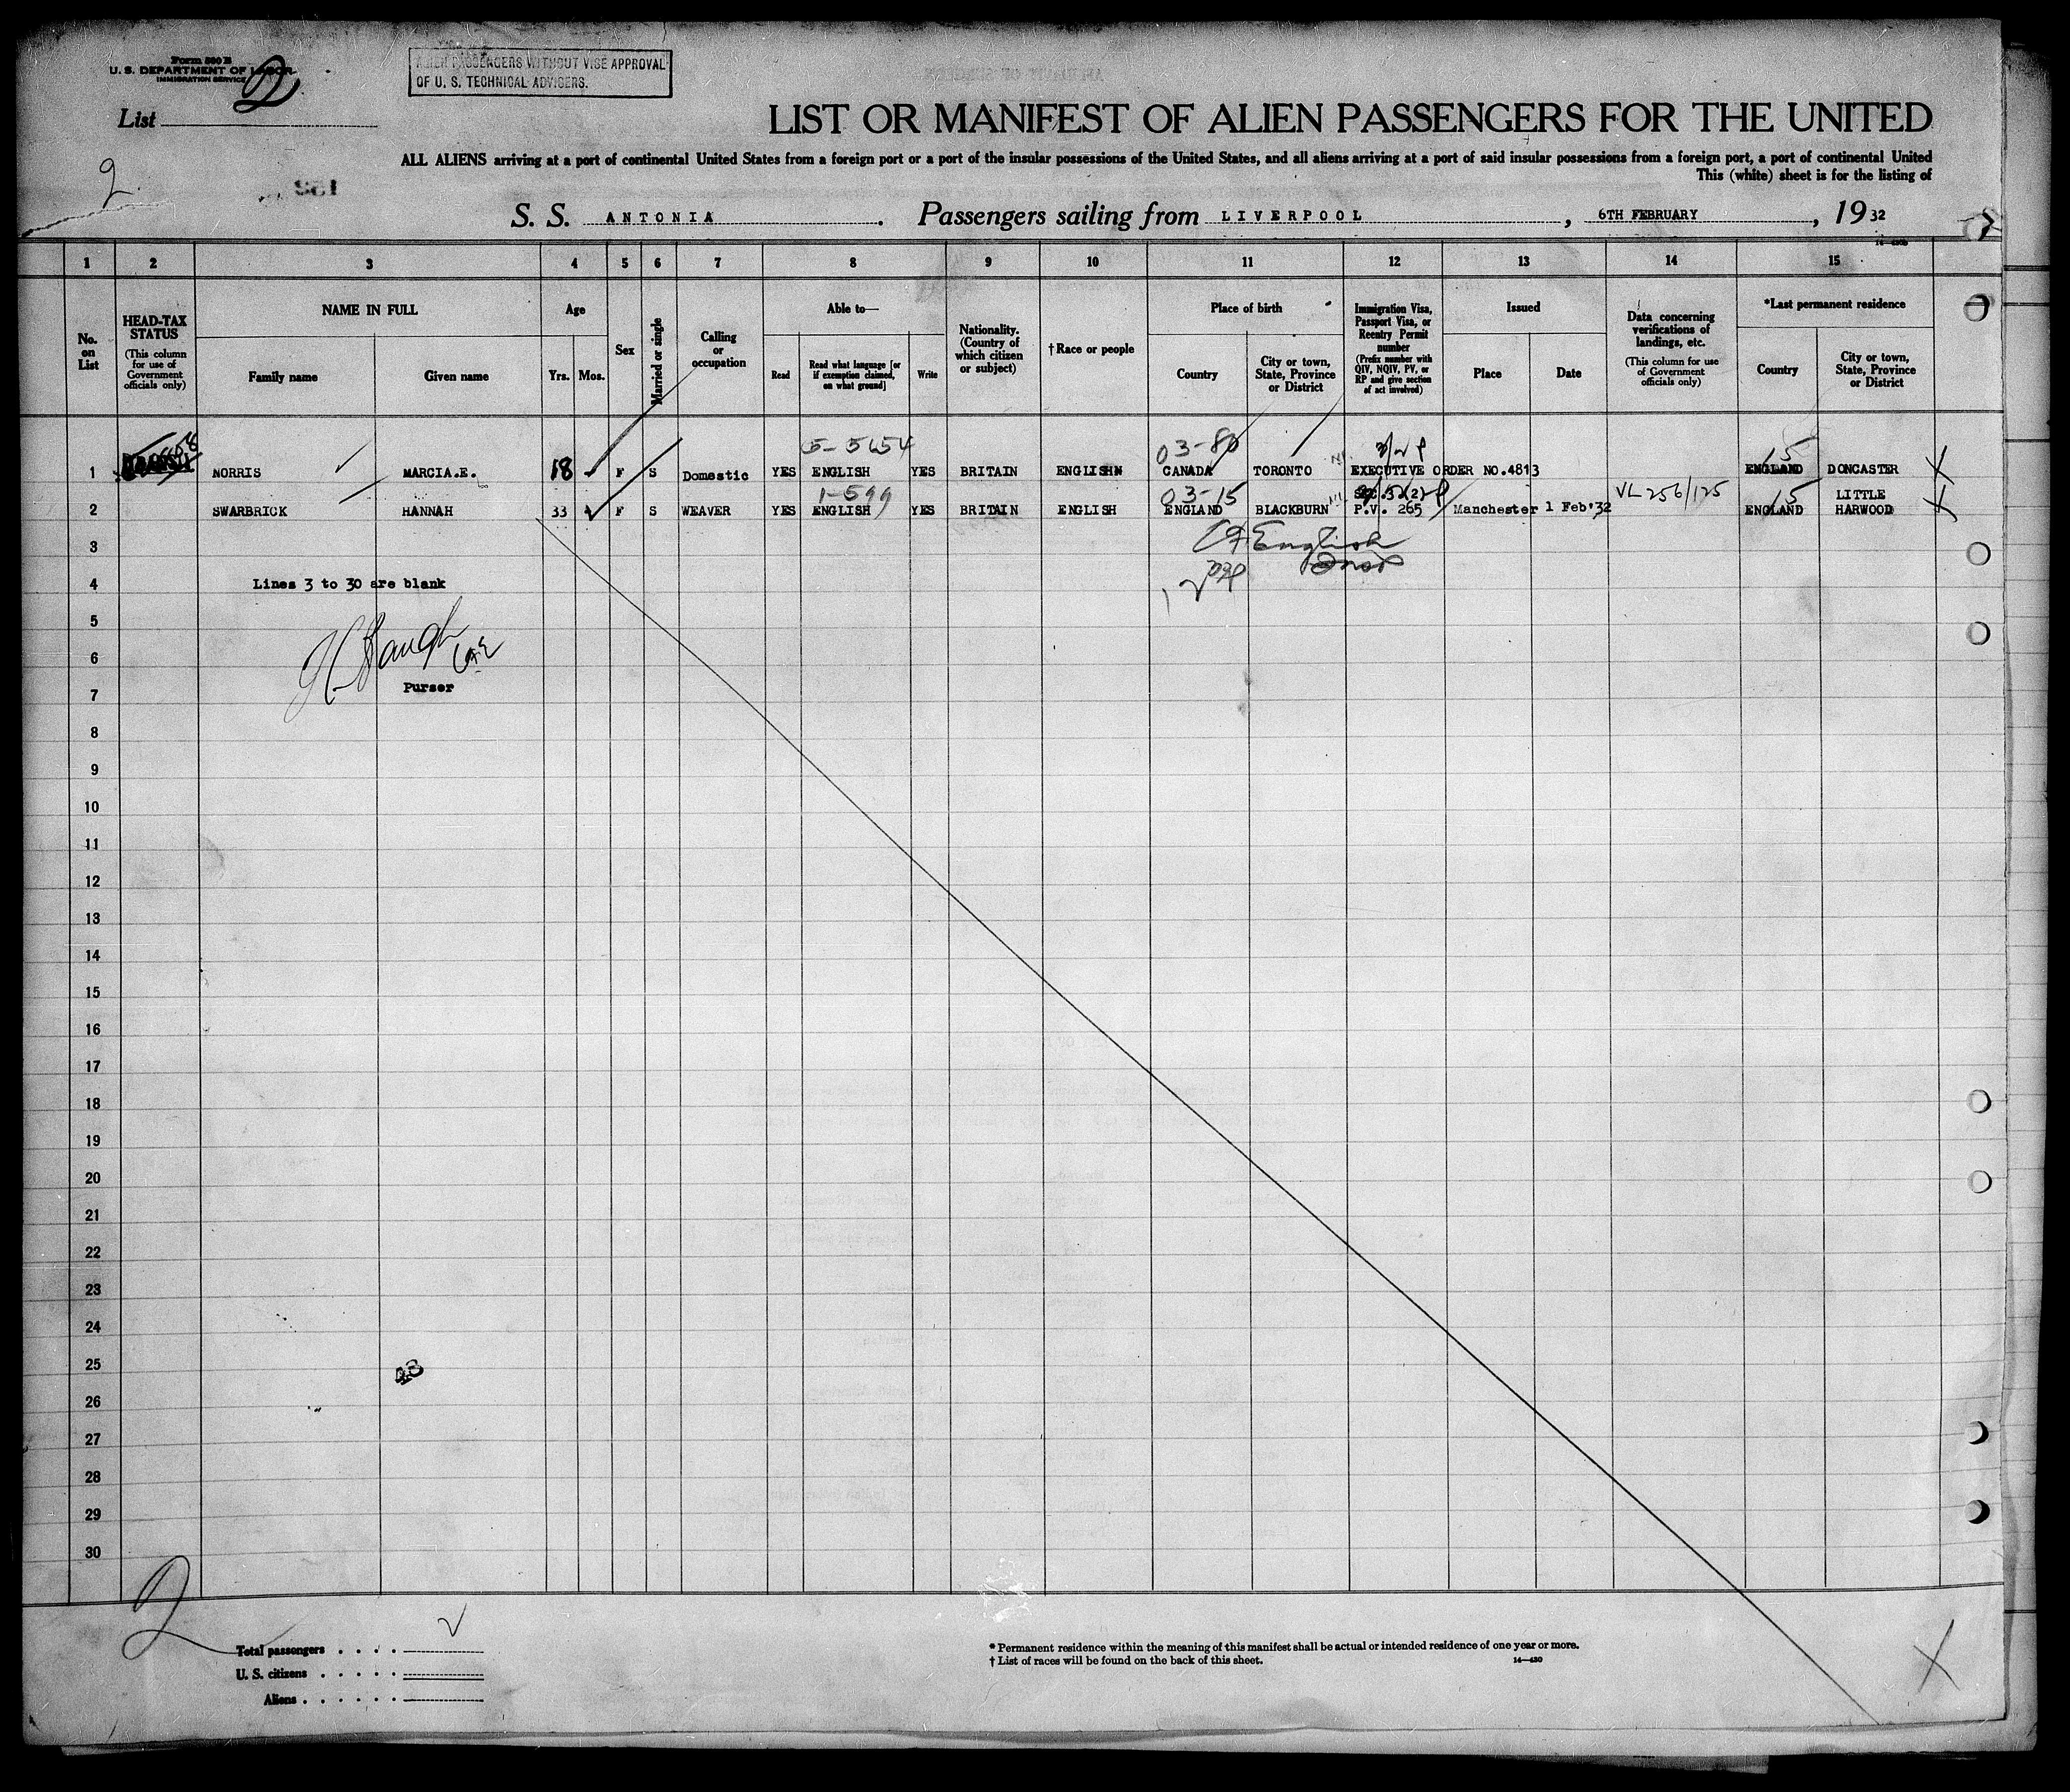 Form 500 B
U. S. DEPARTMENT OF LABOR
IMMIGRATION SERVICE
2
ALIEN PASSENGERS WITHOUT VISE APPROVAL
OF U. S. TECHNICAL ADVISERS.
List
LIST OR MANIFEST OF ALIEN PASSENGERS FOR THE UNITED
ALL ALIENS arriving at a port of continental United States from a foreign port or a port of the insular possessions of the United States, and all aliens arriving at a port of said insular possessions from a foreign port, a port of continental United
This (white) sheet is for the listing of
2
S. S. ANTONIA. Passengers sailing from LIVERPOOL, 6TH FEBRUARY, 1932
1 2 3 4 5 6 7 8 9 10 11 12 13 14 15
No. on List
HEAD-TAX STATUS
(This column for use of Government officials only)
NAME IN FULL
Family name
Given name
Age
Yrs. Mos.
Sex
Married or single
Calling or occupation
Able to—
Read
Read what language [or if exemption claimed, on what ground]
Write
Nationality. (Country of which citizen or subject)
†Race or people
Place of birth
Country
City or town, State, Province or District
Immigration Visa, Passport Visa, or Reentry Permit number
(Prefix number with QIV, NQIV, PV, or RP and give section of act involved)
Issued
Place
Date
Data concerning verifications of landings, etc.
(This column for use of Government officials only)
*Last permanent residence
Country
City or town, State, Province or District
5-5654 03-80 15
1 NORRIS MARCIA.E. 18 F S Domestic YES ENGLISH YES BRITAIN ENGLISH CANADA TORONTO EXECUTIVE ORDER NO.4813 ENGLAND DONCASTER X
1-599 03-15 SEC.3(2) VL 256/125 15 LITTLE
2 SWARBRICK HANNAH 33 F S WEAVER YES ENGLISH YES BRITAIN ENGLISH ENGLAND BLACKBURN P.V. 265 Manchester 1 Feb'32 ENGLAND HARWOOD X
3 English
4 Lines 3 to 30 are blank
5
6
7 Purser
8
9
10
11
12
13
14
15
16
17
18
19
20
21
22
23
24
25
26
27
28
29
30
2
Total passengers
U. S. citizens
Aliens
* Permanent residence within the meaning of this manifest shall be actual or intended residence of one year or more.
† List of races will be found on the back of this sheet.
14—430
X